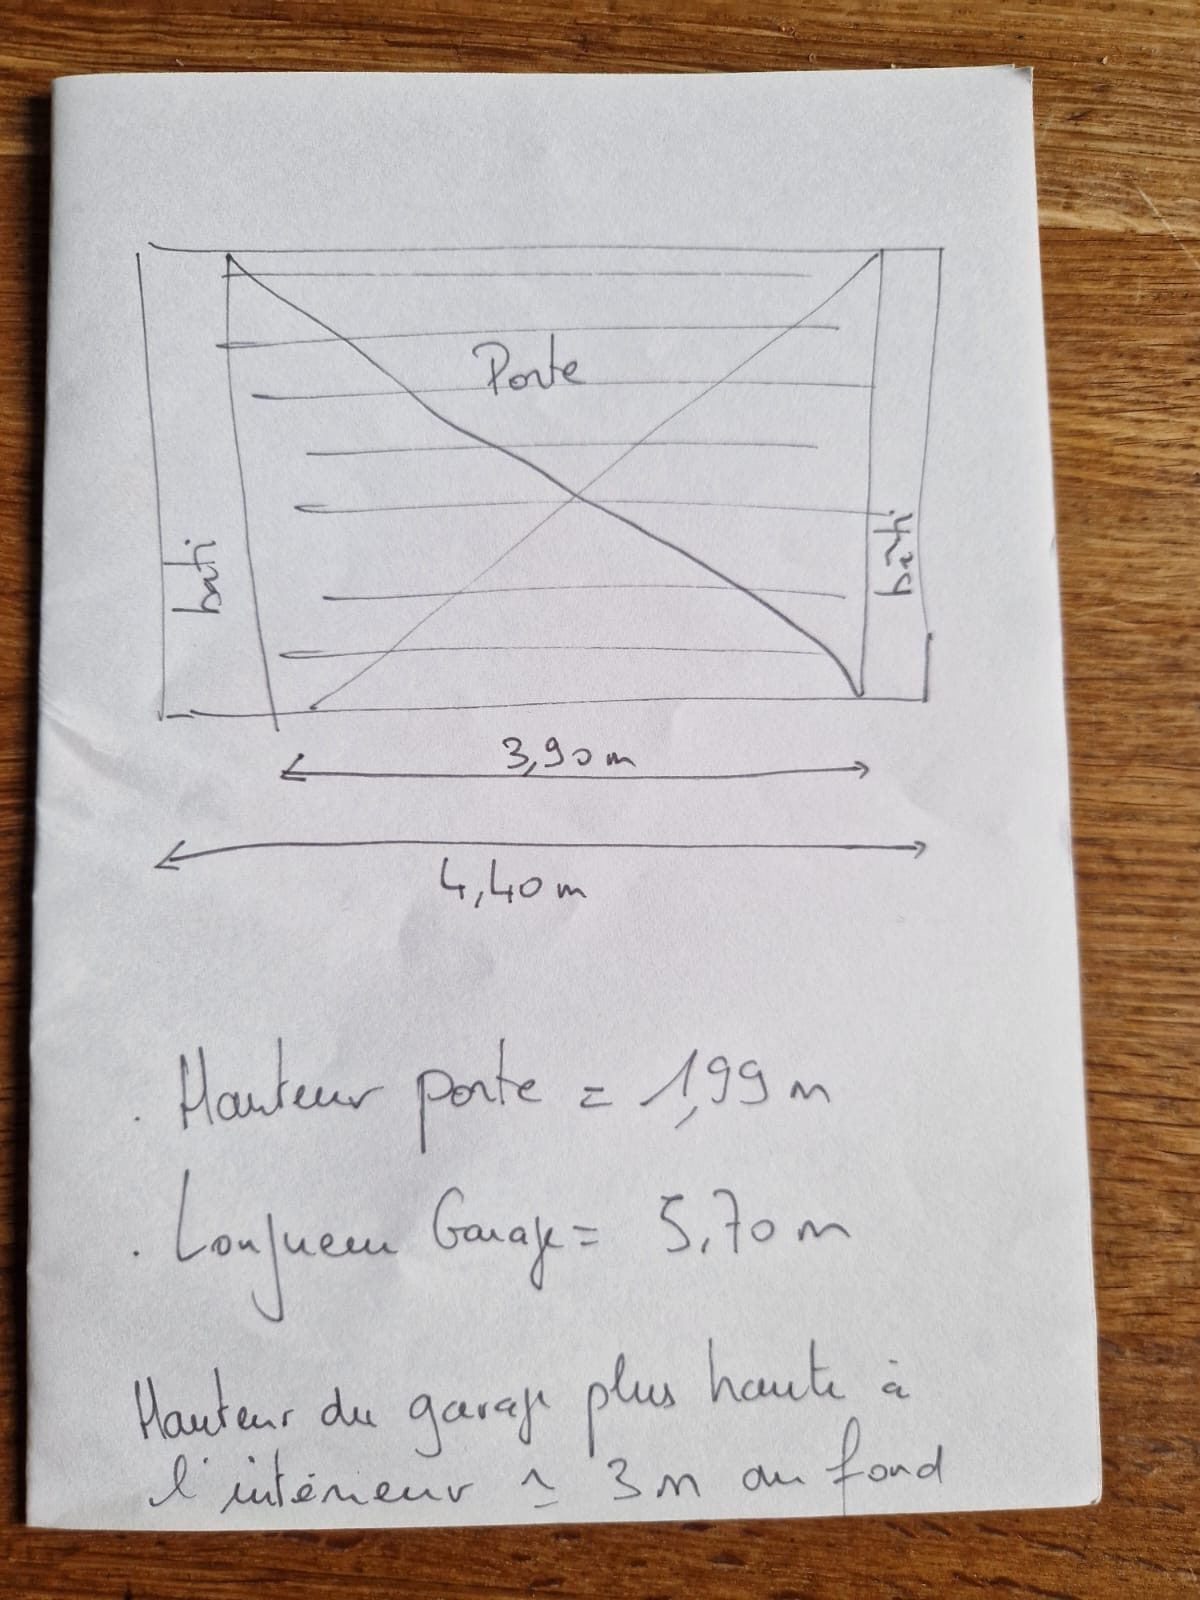 Porte
bati
bâti
3,90 m
4,40 m
. Hauteur porte = 1,99 m
. Longueur Garage = 5,70 m
Hauteur du garage plus haute à
l'intérieur ≃ 3m au fond